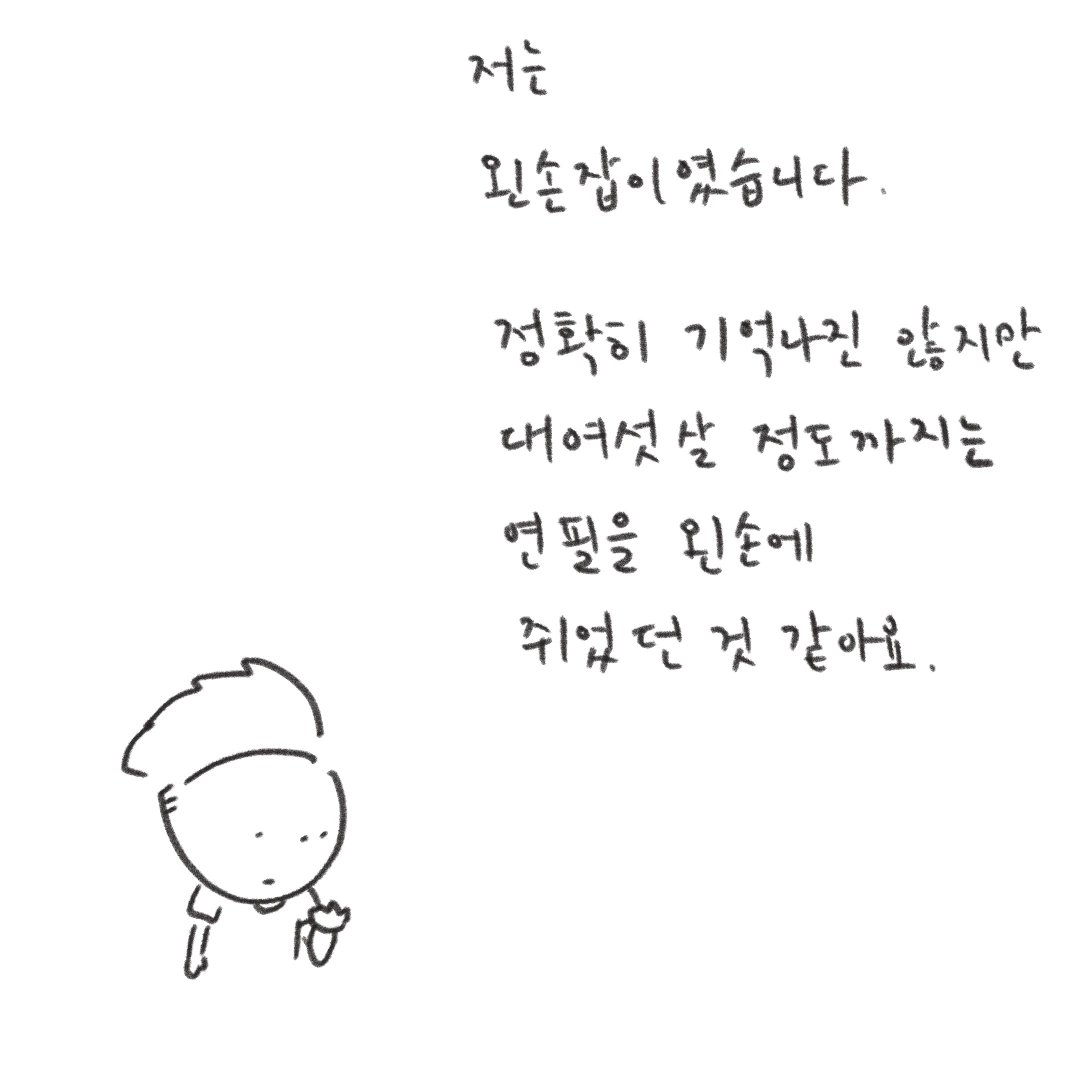 저는
왼손잡이였습니다.
정확히 기억나진 않지만
대여섯살 정도까지는
연필을 왼손에
쥐었던 것 같아요.